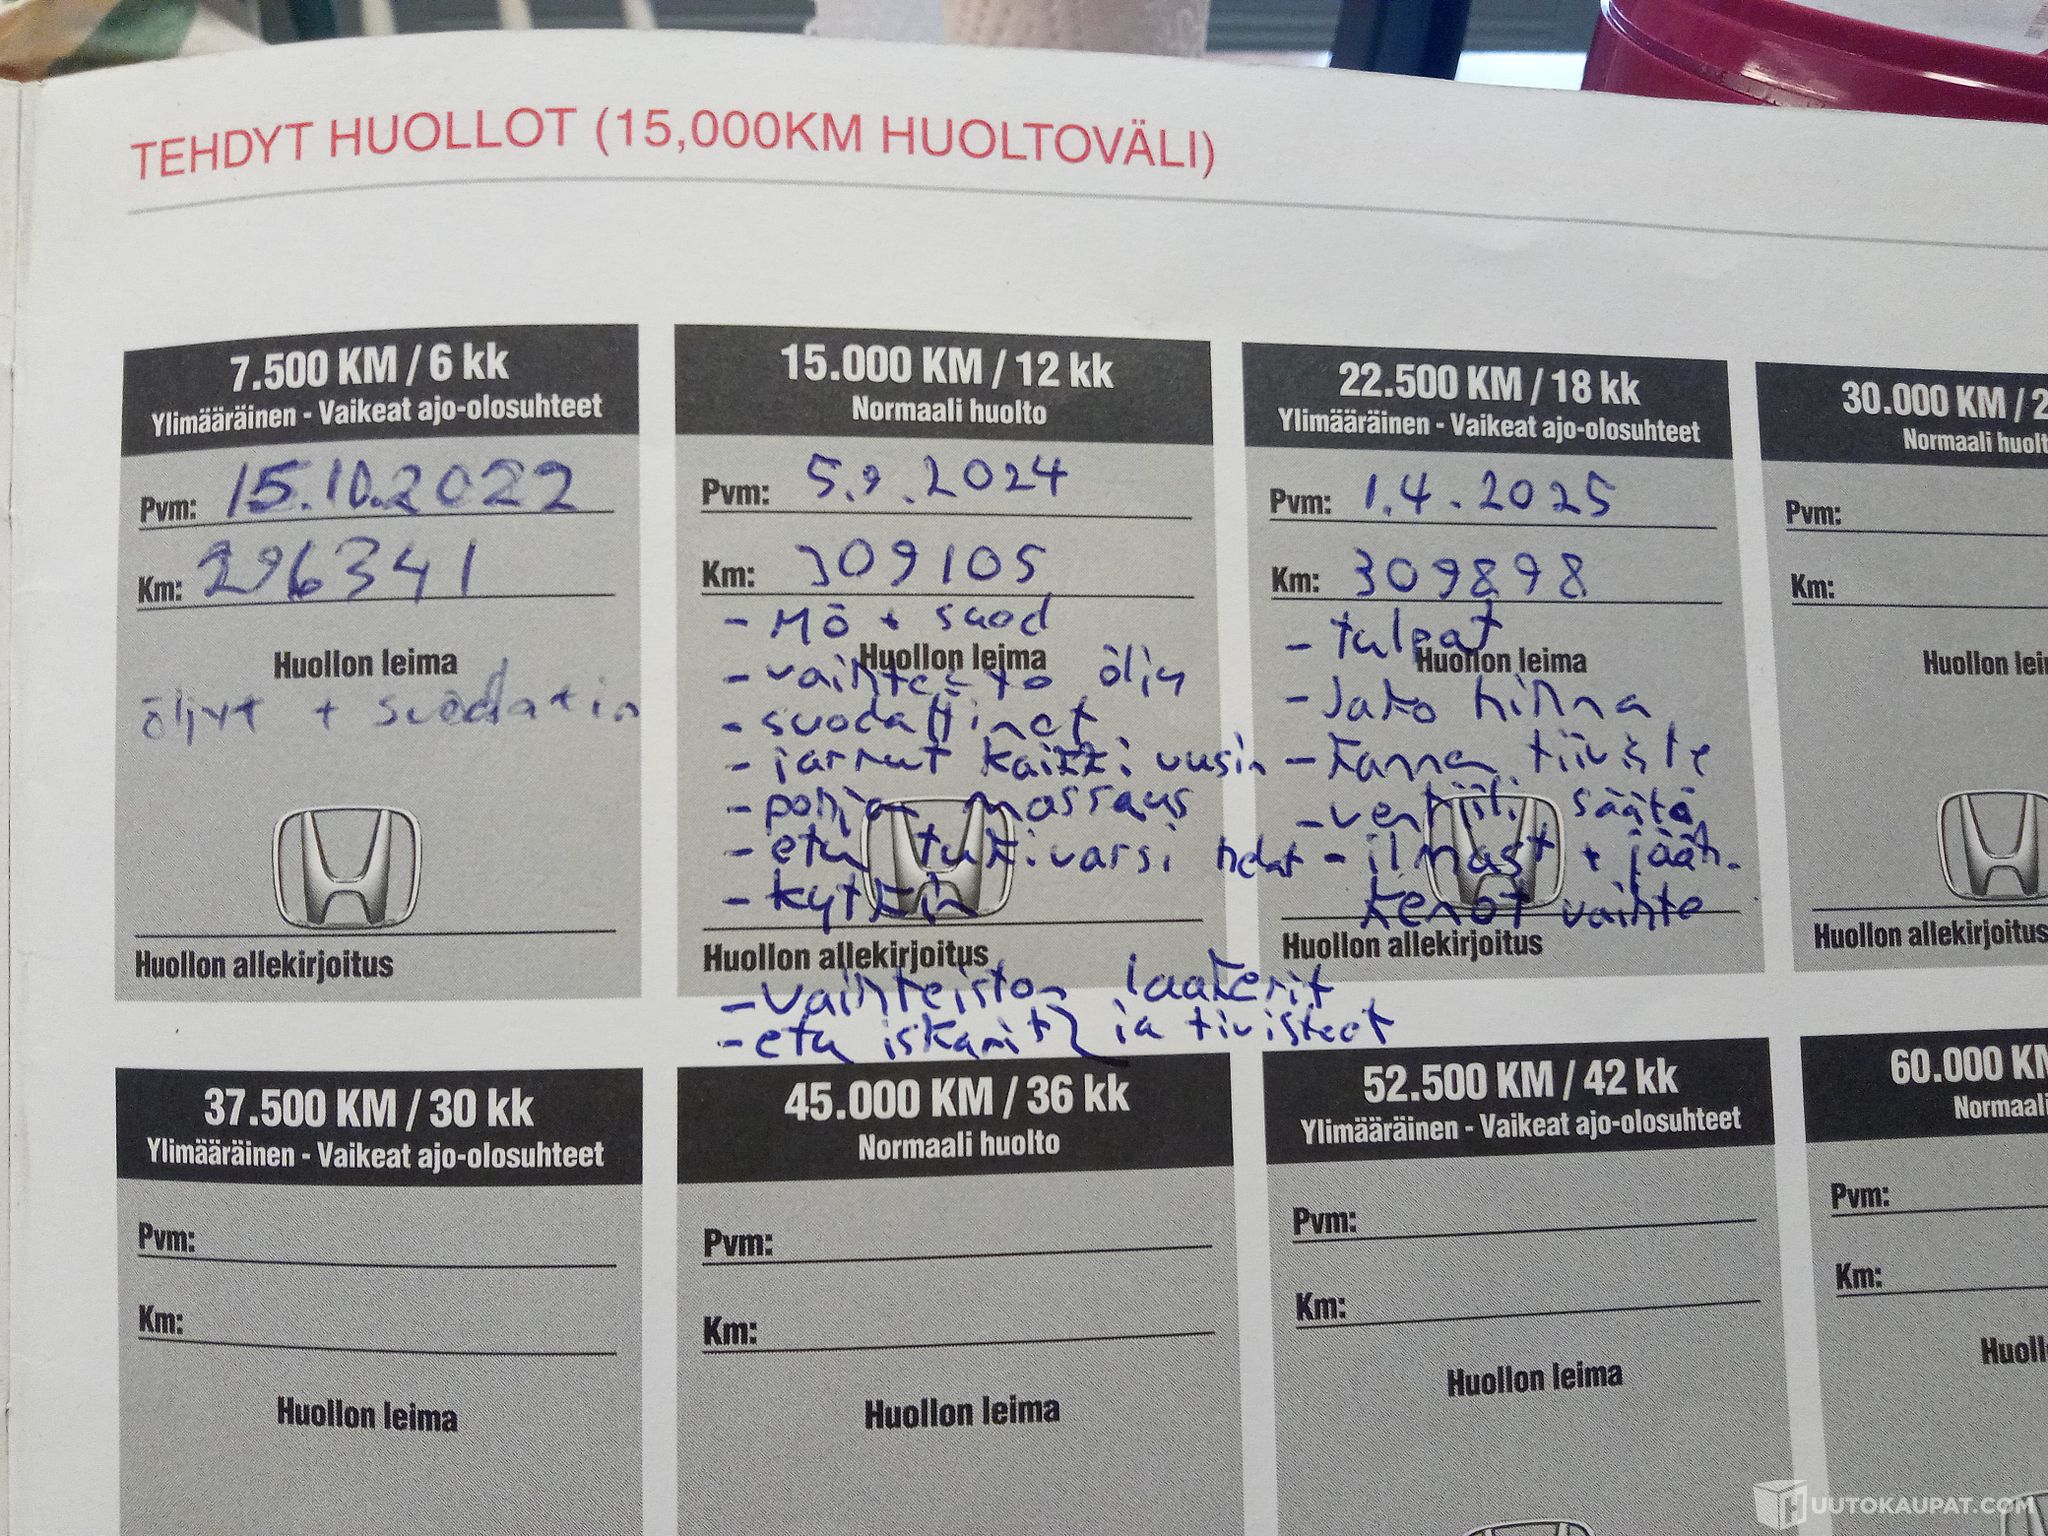 TEHDYT HUOLLOT (15,000KM HUOLTOVÄLI)
7.500 KM / 6 kk
Ylimääräinen - Vaikeat ajo-olosuhteet
Pvm: 15.10.2022
Km: 296341
Huollon leima
öljyt + suodatin
Huollon allekirjoitus
15.000 KM / 12 kk
Normaali huolto
Pvm: 5.9.2024
Km: 309105
- MÖ + suod
Huollon leima
- vaihteisto öljy
- suodattimet
- jarrut kaikki uusin
- pohja massaus
- etu tukivarsi
- kytkin
Huollon allekirjoitus
- vaihteiston laakerit
- etu iskarit ja tiivisteet
22.500 KM / 18 kk
Ylimääräinen - Vaikeat ajo-olosuhteet
Pvm: 1.4.2025
Km: 309898
- tulpat
Huollon leima
- Jako hihna
- kannen tiiviste
- venttiili säätö
- ilmast + jääh.
kenot vaihto
Huollon allekirjoitus
30.000 KM / 2
Normaali huolt
Pvm:
Km:
Huollon lei
Huollon allekirjoitus
37.500 KM / 30 kk
Ylimääräinen - Vaikeat ajo-olosuhteet
Pvm:
Km:
Huollon leima
45.000 KM / 36 kk
Normaali huolto
Pvm:
Km:
Huollon leima
52.500 KM / 42 kk
Ylimääräinen - Vaikeat ajo-olosuhteet
Pvm:
Km:
Huollon leima
60.000 KM
Normaali
Pvm:
Km:
Huoll
HUUTOKAUPAT.COM